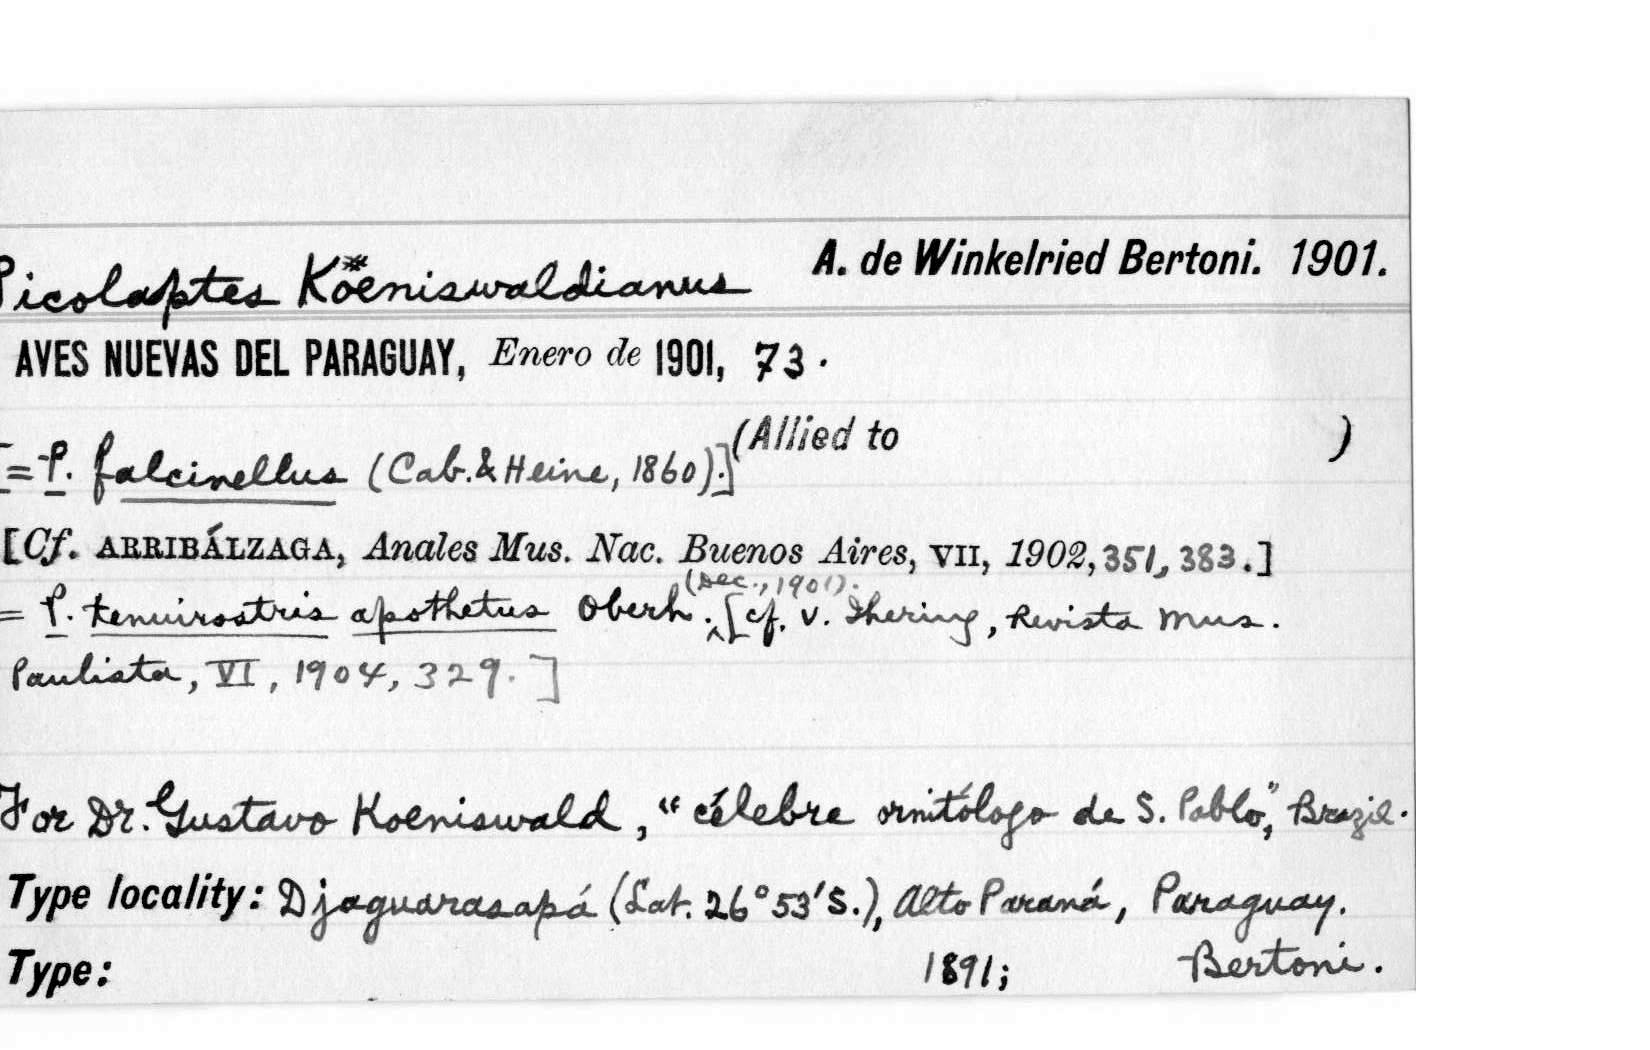 Picolaptes Köeniswaldianus A. de Winkelried Bertoni. 1901.
AVES NUEVAS DEL PARAGUAY, Enero de 1901, 73.
[= P. falcinellus (Cab. & Heine, 1860).] (Allied to )
[Cf. ARRIBÁLZAGA, Anales Mus. Nac. Buenos Aires, VII, 1902, 351, 383.]
(Dec., 1901).
= P. tenuirostris apothetus Oberh. [cf. v. Ihering, Revista Mus.
Paulista, VI, 1904, 329.]
For Dr. Gustavo Koeniswald, "célebre ornitólogo de S. Pablo," Brazil.
Type locality: Djaguarasapá (Lat. 26°53'S.), Alto Paraná, Paraguay.
Type: 1891; Bertoni.